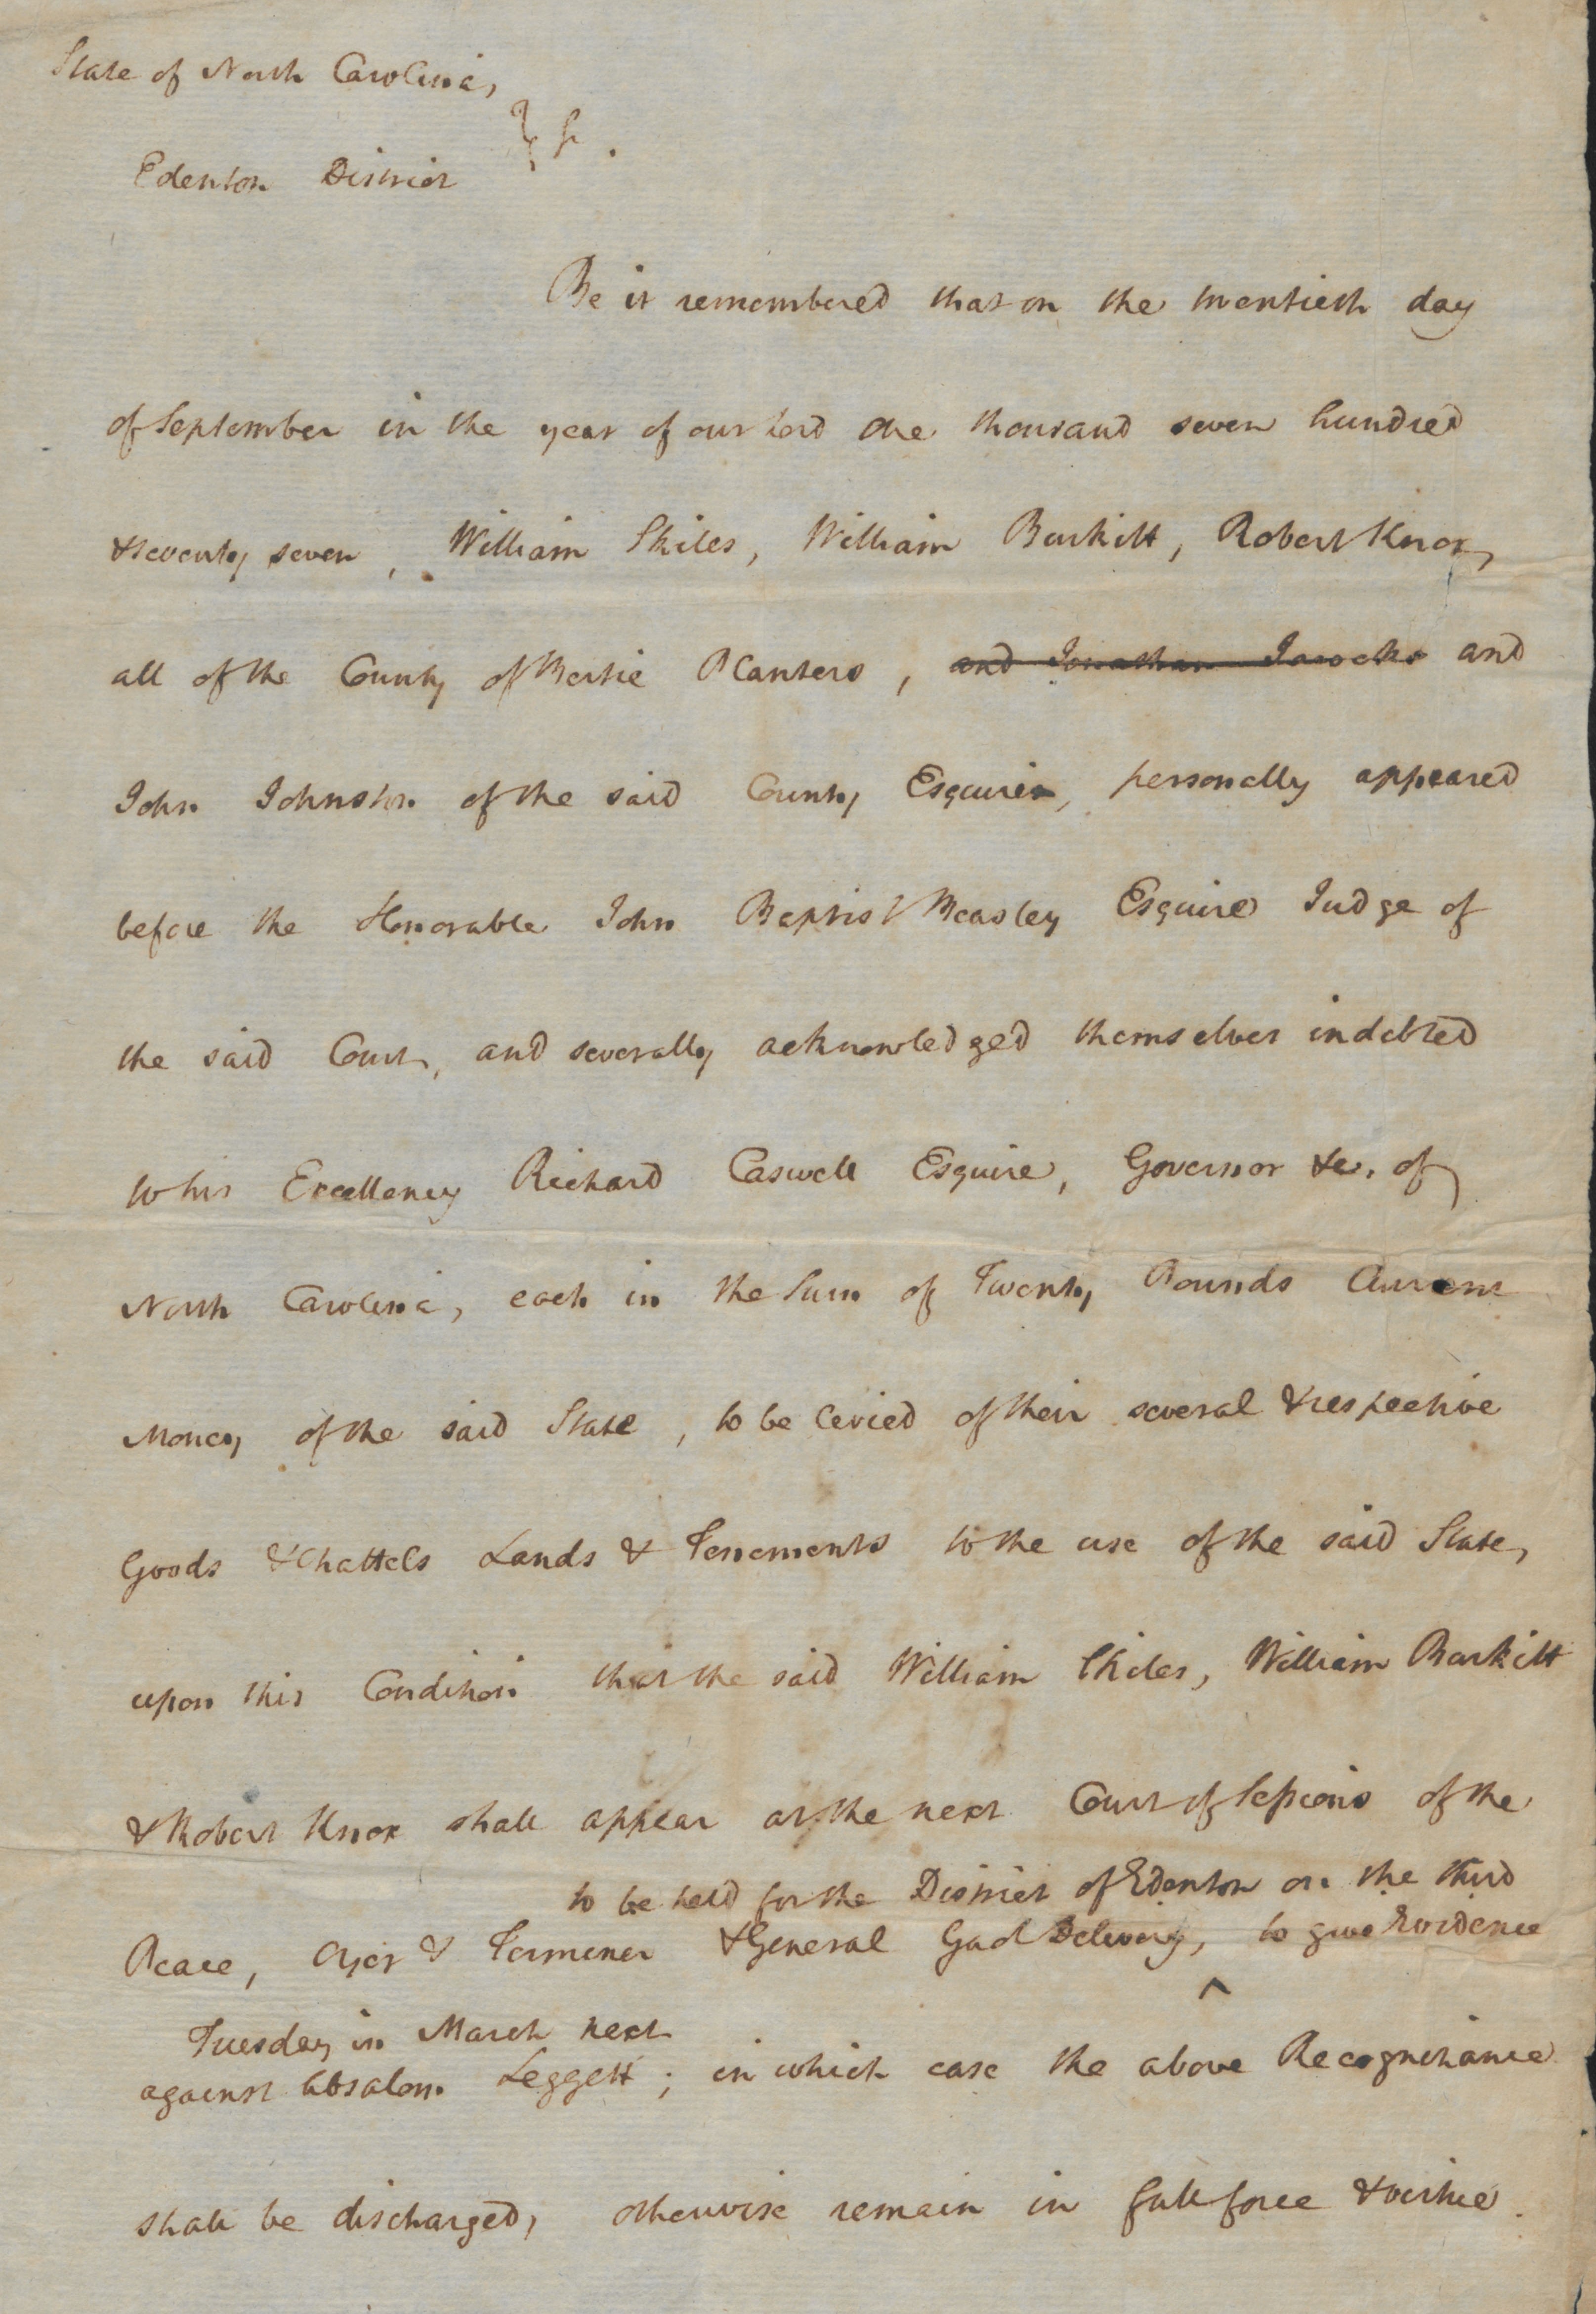 State of North Carolina,
} ss.
Edenton District
Be it remembered that on the twentieth day
of September in the year of our Lord one thousand seven hundred
& seventy seven, William Skiles, William Burkitt, Robert Knox,
all of the County of Bertie Planters, and Jonathan Jacocks and
John Johnston of the said County Esquire, personally appeared
before the Honorable John Baptist Beasley Esquire Judge of
the said Court, and severally acknowledged themselves indebted
to his Excellency Richard Caswell Esquire, Governor &c. of
North Carolina, each in the Sum of Twenty Pounds Current
Money of the said State, to be levied of their several & respective
Goods & Chattels Lands & Tenements to the use of the said State,
upon this Condition that the said William Skiles, William Burkitt
& Robert Knox shall appear at the next Court of Sessions of the
to be held for the District of Edenton on the third
Peace, Oyer & Terminer & General Gaol Delivery, ^ to give Evidence
Tuesday in March next
against Absalom Leggett; in which case the above Recognizance
shall be discharged, otherwise remain in full force & virtue.